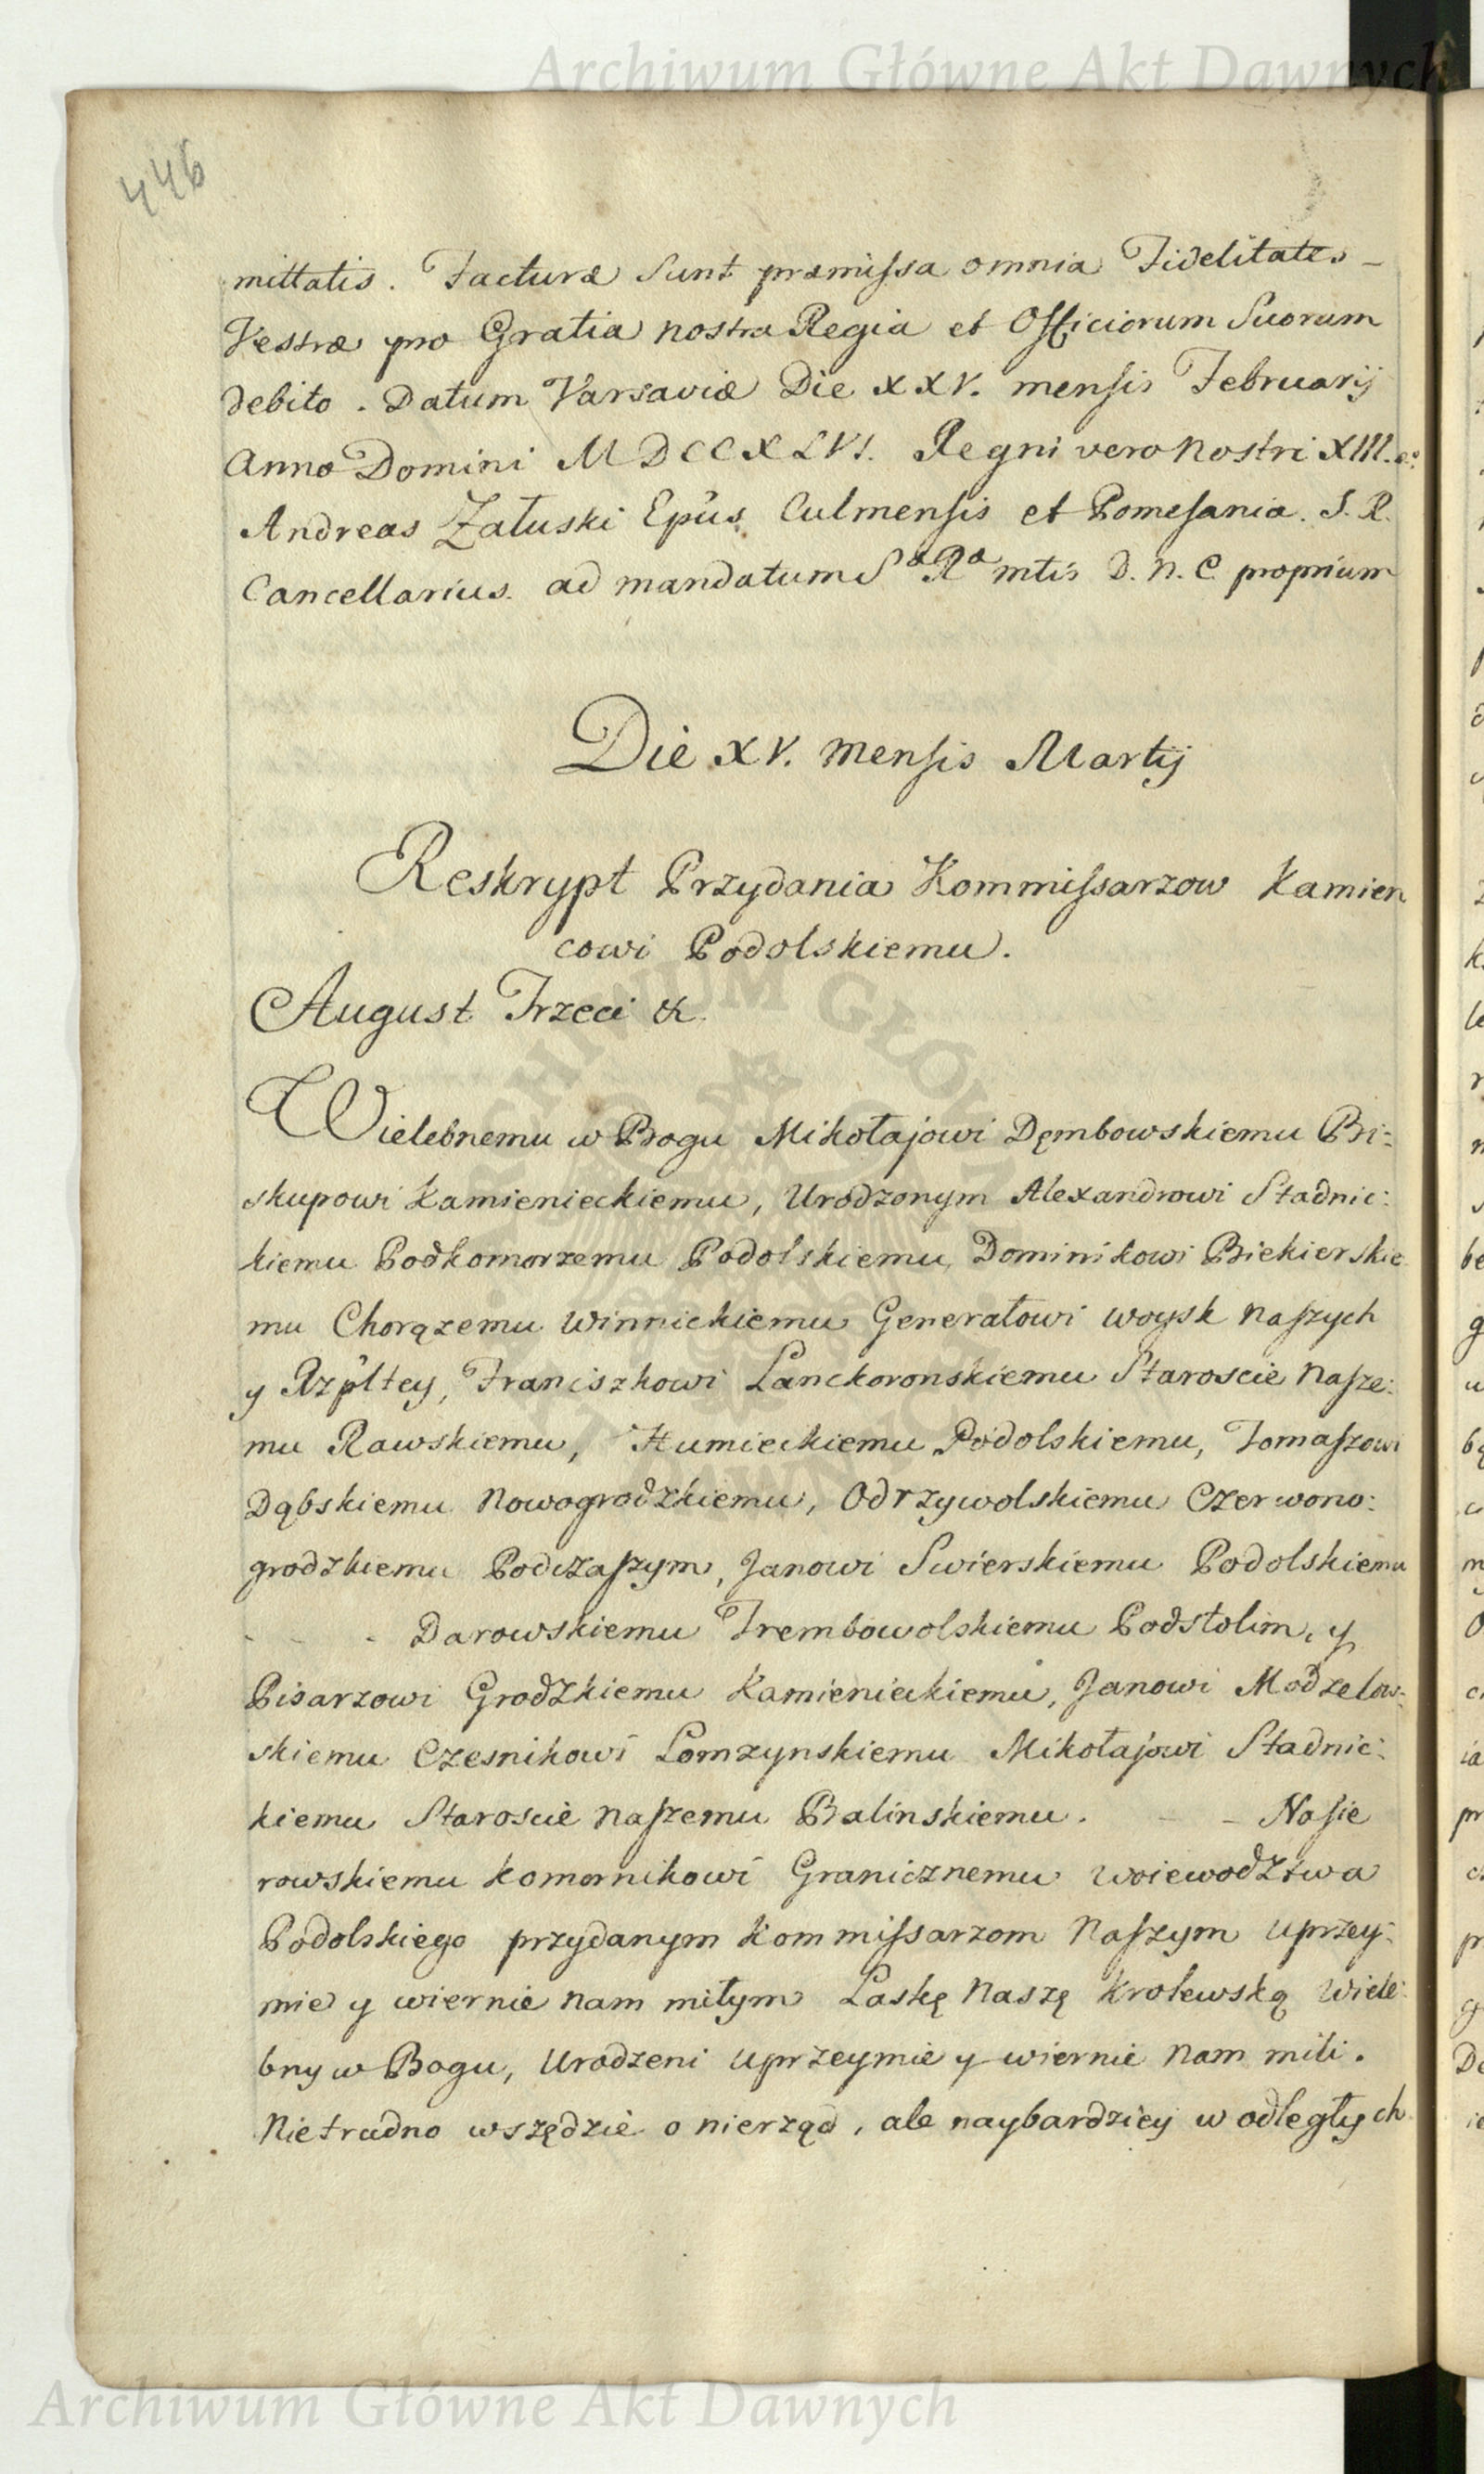 Archiwum Główne Akt Dawnych
446
mittatis. Facturæ Sunt præmissa omnia Fidelitates
Vestræ pro Gratia nostra Regia et Officiorum Suorum
debito. Datum Varsaviæ Die XXV. mensis Februarij
Anno Domini MDCCXLVI. Regni vero Nostri XIII.
Andreas Załuski Epus Culmensis et Pomesaniæ. S. R.
Cancellarius. ad mandatum Sæ Ræ mtis D. N. C. proprium
Die XV. Mensis Martij
Reskrypt Przydania Kommissarzow Kamien
cowi Podolskiemu.
August Trzeci &
Wielebnemu w Bogu Mikołajowi Dęmbowskiemu Bi:
skupowi Kamienieckiemu, Urodzonym Alexandrowi Stadnic:
kiemu Podkomorzemu Podolskiemu, Dominikowi Biekierskie
mu Chorązemu Winnickiemu Generałowi woysk Naszych
y Rzpltey, Franciszkowi Lanckoronskiemu Staroscie Nasze:
mu Rawskiemu, Humieckiemu Podolskiemu, Tomaszowi
Dąbskiemu Nowogrodzkiemu, Odrzywolskiemu Czerwono:
grodzkiemu Podczaszym, Janowi Swierskiemu Podolskiemu
- - - Darowskiemu Trembowolskiemu Podstolim, y
Pisarzowi Grodzkiemu Kamienieckiemu, Janowi Modzelow:
skiemu Czesnikowi Lomzynskiemu Mikołajowi Stadnic:
kiemu Staroscie naszemu Balinskiemu. - - Nasie
rowskiemu Komornikowi Granicznemu Woiewodztwa
Podolskiego przydanym Kommissarzom Naszym uprzey:
mie y wiernie nam miłym Laskę Naszę Krolewską Wiele:
bny w Bogu, Urodzeni uprzeymie y wiernie nam mili.
Nietrudno wszędzie o nierząd, ale naybardziey w odległych
Archiwum Główne Akt Dawnych